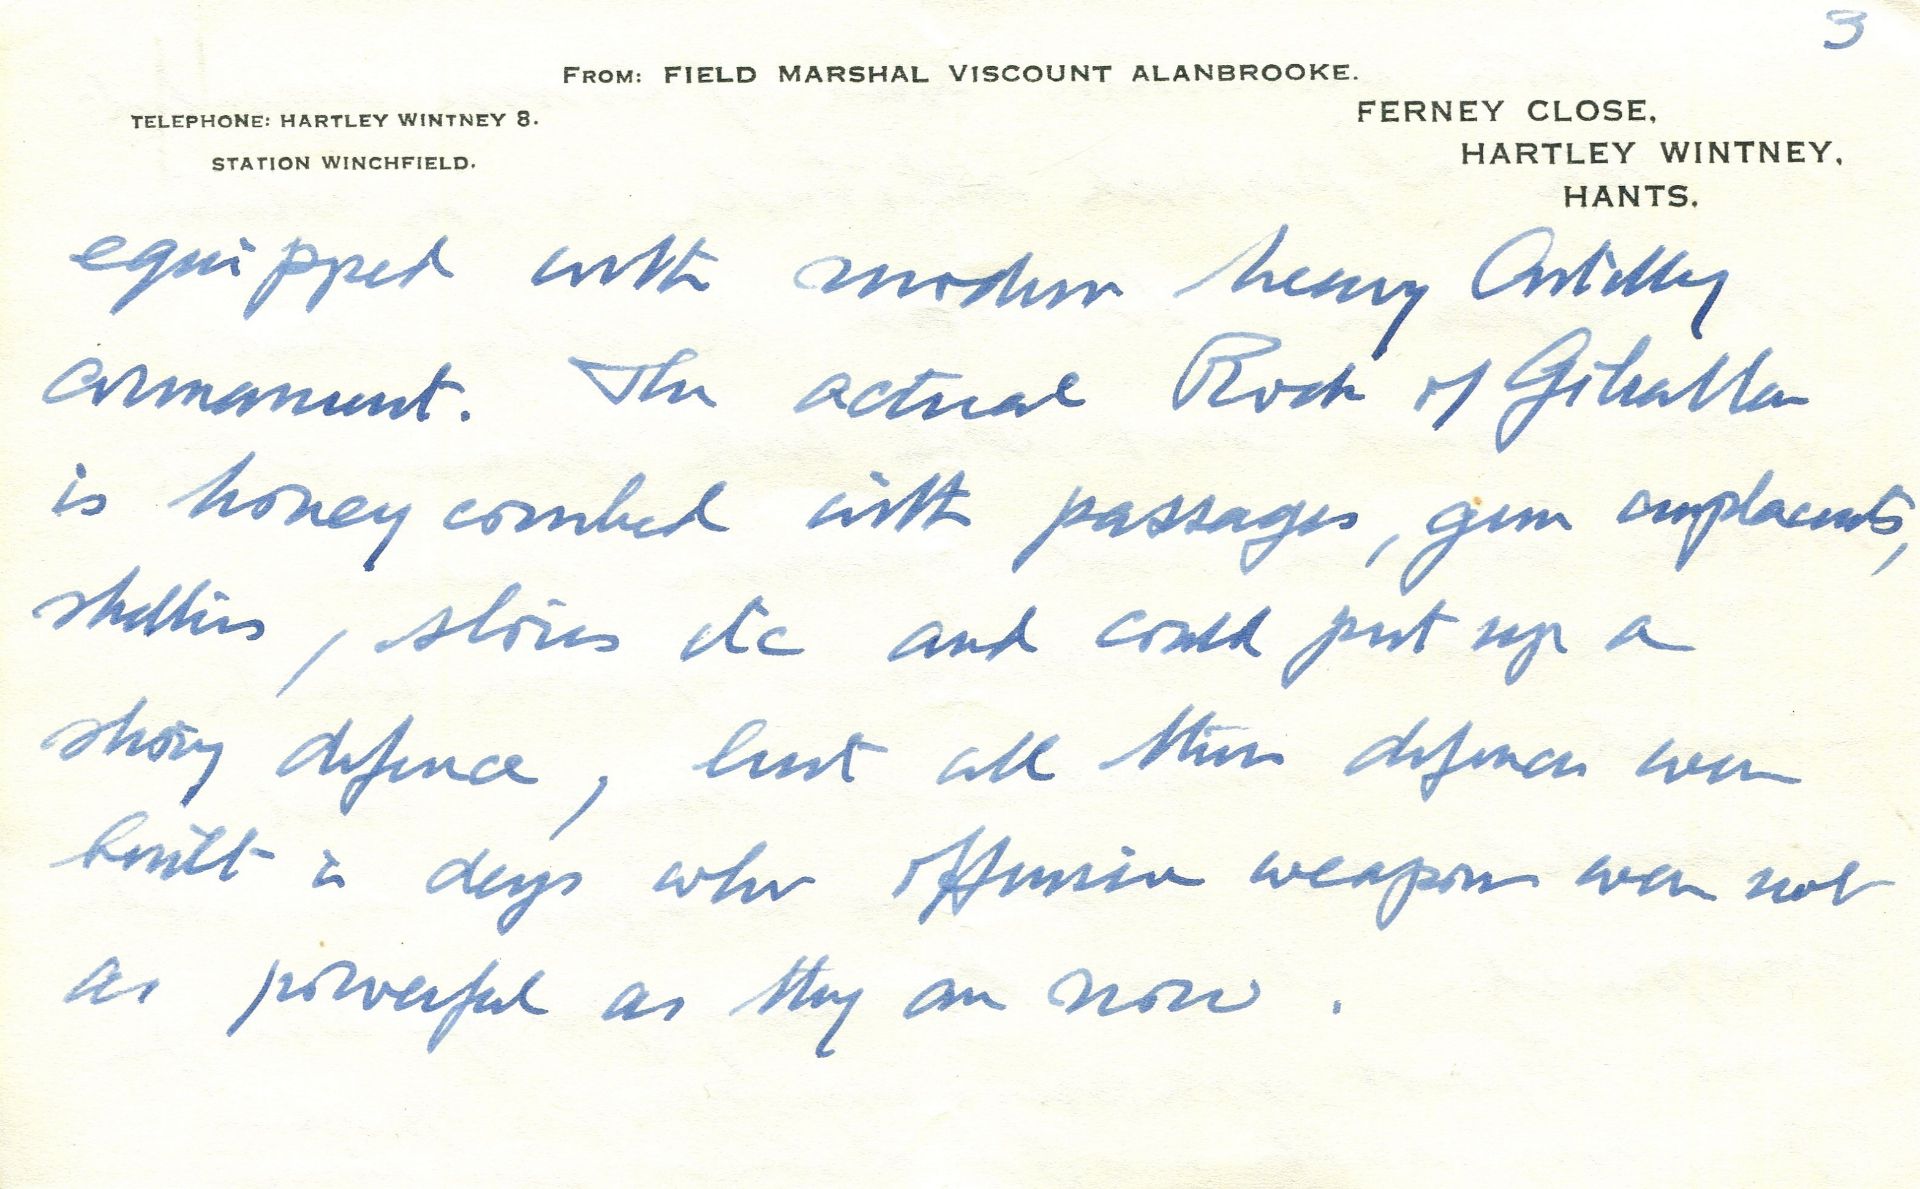 3
FROM: FIELD MARSHAL VISCOUNT ALANBROOKE.
TELEPHONE: HARTLEY WINTNEY 8.
STATION WINCHFIELD.
FERNEY CLOSE,
HARTLEY WINTNEY,
HANTS.
equipped with modern heavy Artillery
armament. The actual Rock of Gibraltar
is honey combed with passages, gun emplacements,
shelters, stores etc and could put up a
strong defence, but all these defences were
built in days when offensive weapons were not
as powerful as they are now.